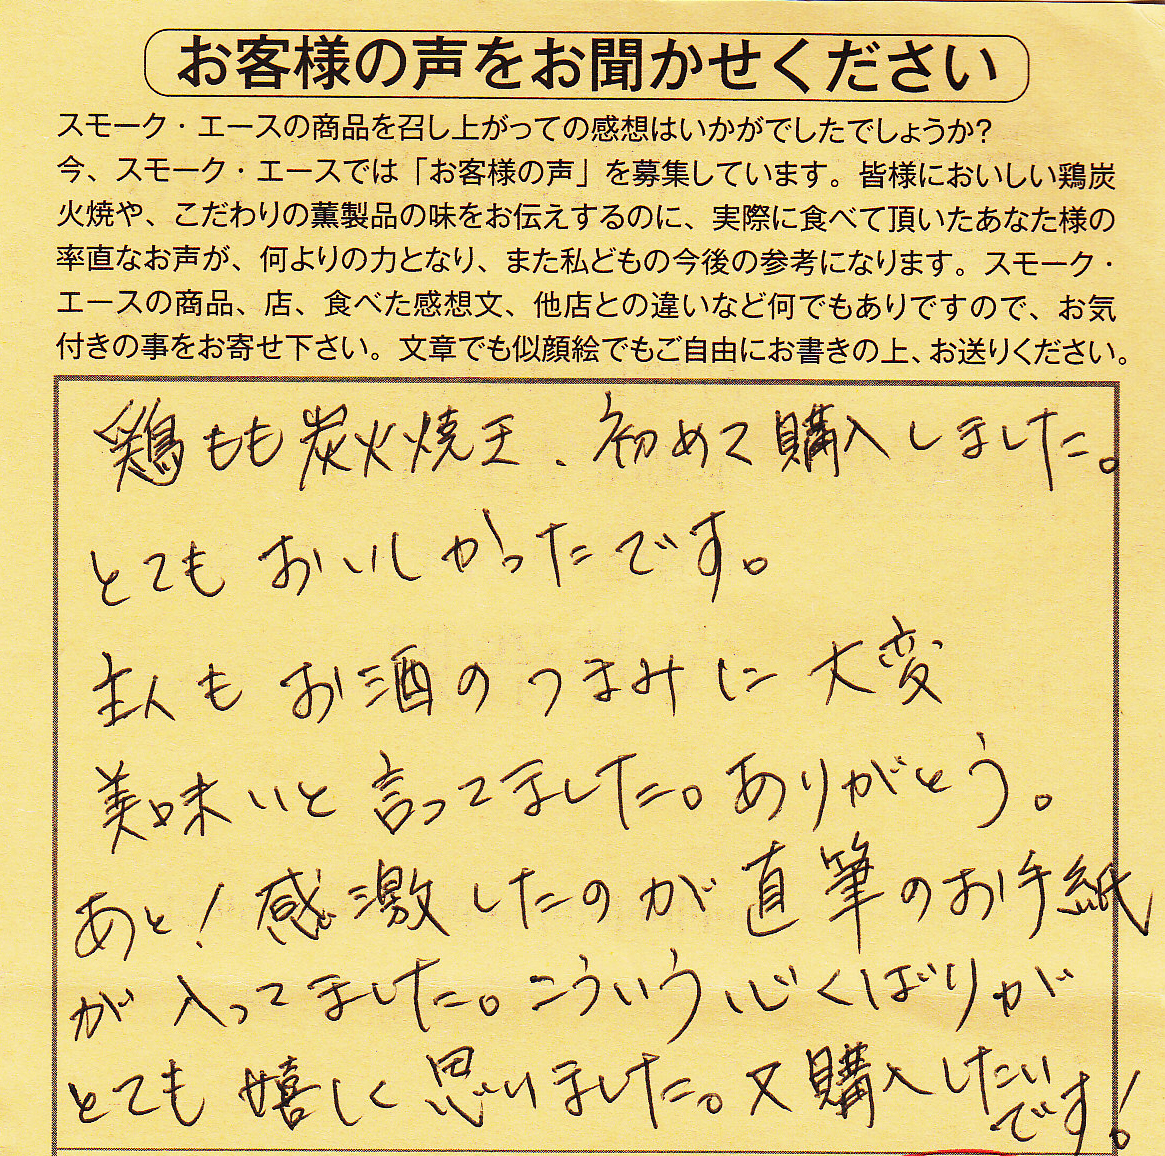 お客様の声をお聞かせください
スモーク・エースの商品を召し上がっての感想はいかがでしたでしょうか?
今、スモーク・エースでは「お客様の声」を募集しています。皆様においしい鶏炭
火焼や、こだわりの薫製品の味をお伝えするのに、実際に食べて頂いたあなた様の
率直なお声が、何よりの力となり、また私どもの今後の参考になります。スモーク・
エースの商品、店、食べた感想文、他店との違いなど何でもありですので、お気
付きの事をお寄せ下さい。文章でも似顔絵でもご自由にお書きの上、お送りください。
鶏もも炭火焼き、初めて購入しました。
とてもおいしかったです。
主人もお酒のつまみに大変
美味いと言ってました。ありがとう。
あと!感激したのが直筆のお手紙
が入ってました。こういう心くばりが
とても嬉しく思いました。又購入したい
です!